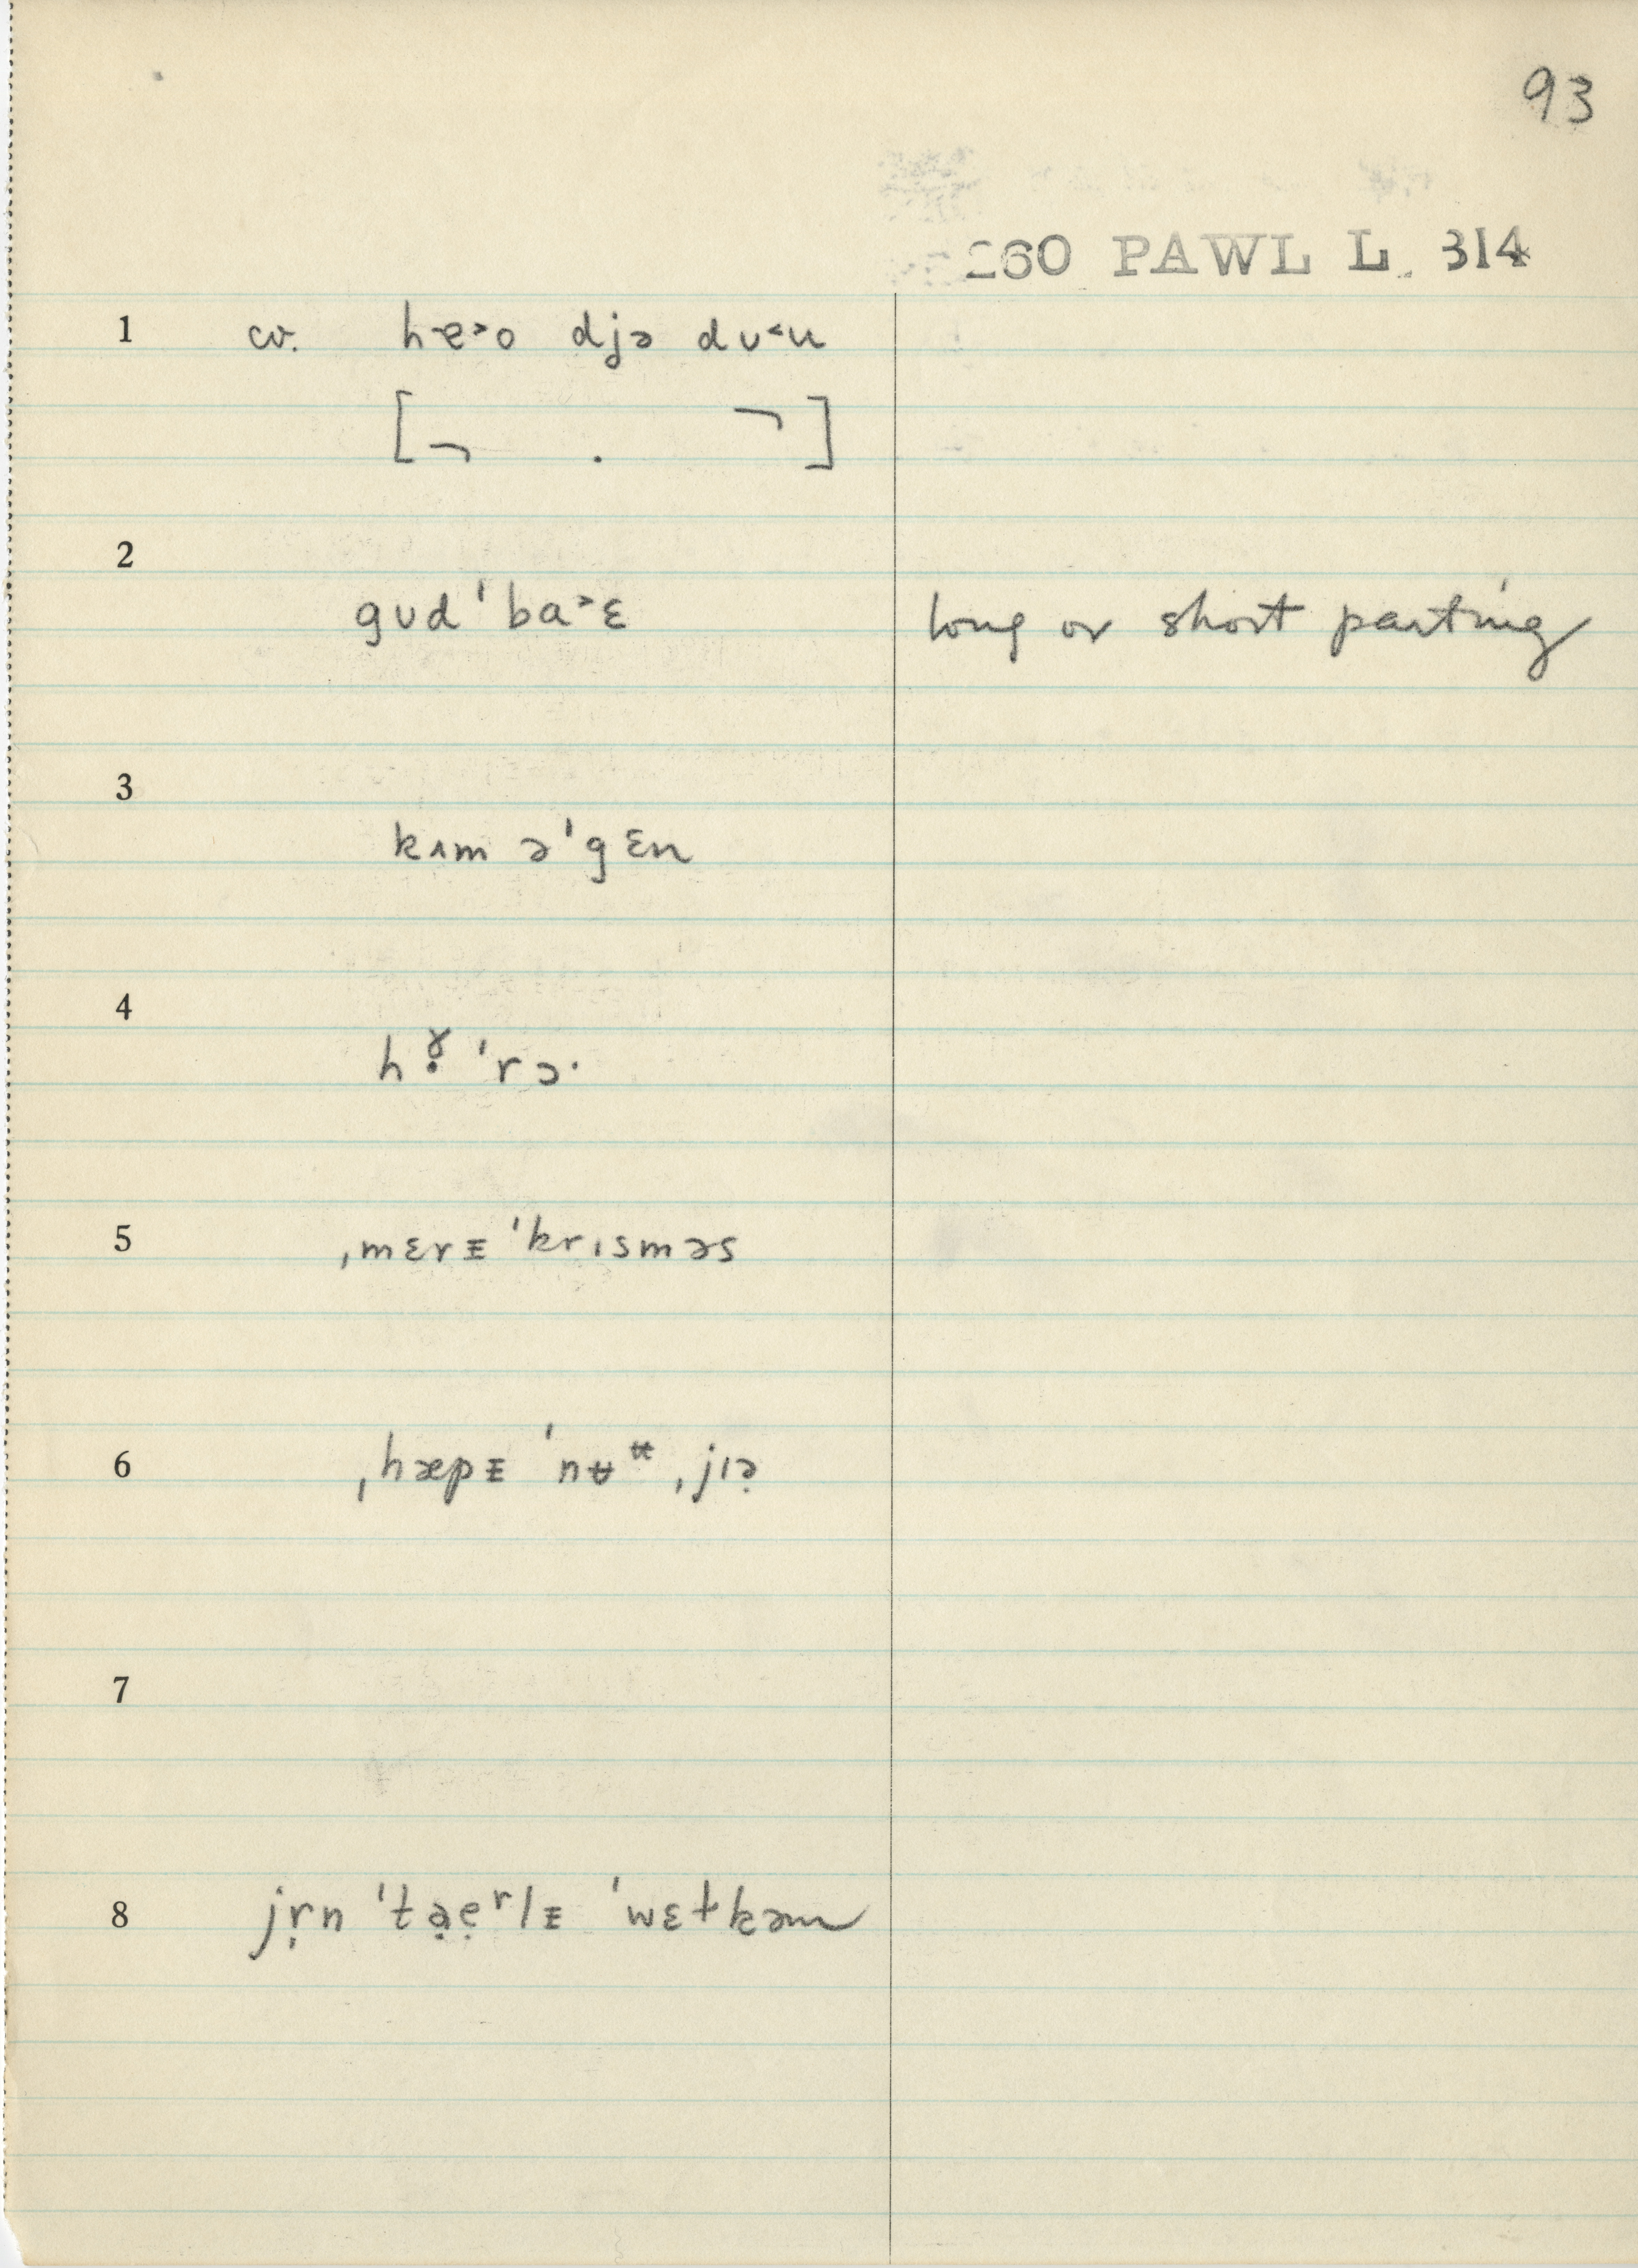 93
260 PAWL L. 314
1 cv. hɐ˃o djə dʊ˂u
[¬ . ¬]
2
gʊd ˈba˃ɛ long or short parting
3
kʌm əˈgɛn
4
hɤ̣ ˈrɔ·
5
ˌmɛrᵻ ˈkrɪsməs
6 ˌhæpᵻ ˈnʉᵘ̶ ˌjɪə̣
7
8 jṛn ˈtạẹʳlᵻ ˈwɛɫkəm